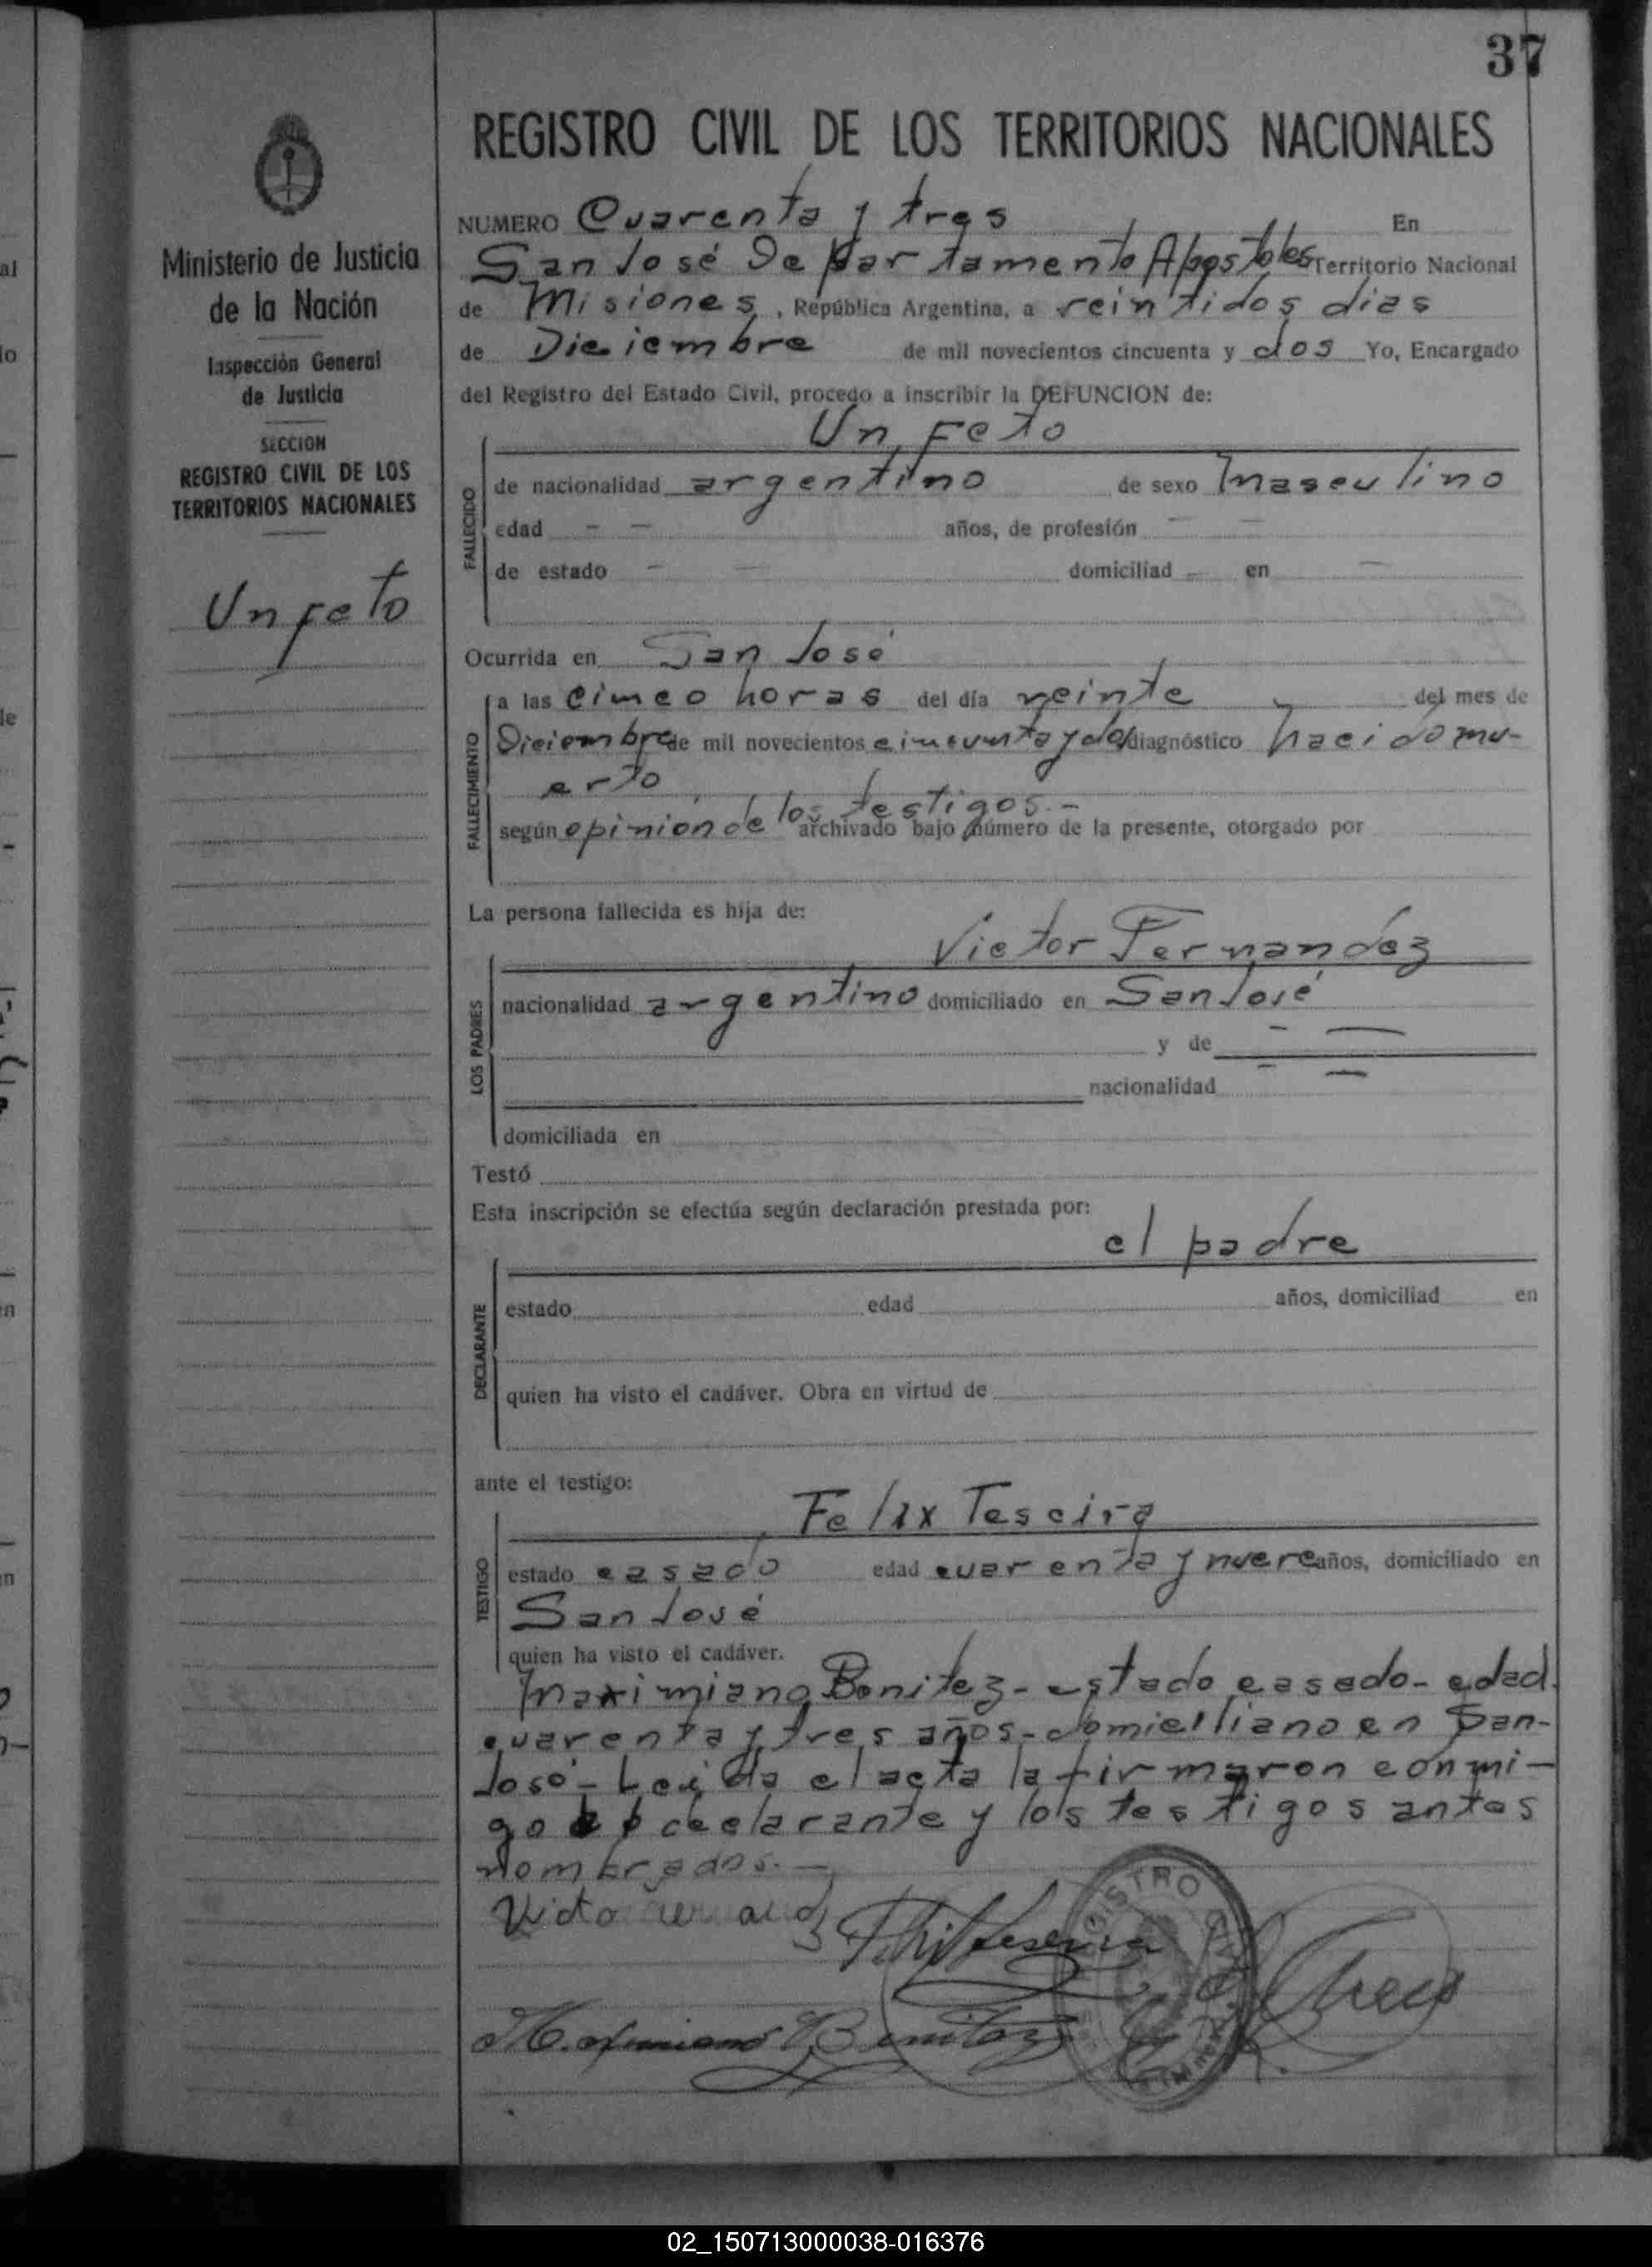 37
REGISTRO CIVIL DE LOS TERRITORIOS NACIONALES
Ministerio de Justicia
de la Nación
Inspección General
de Justicia
SECCION
REGISTRO CIVIL DE LOS
TERRITORIOS NACIONALES
Un feto
NUMERO Cuarenta y tres En
San José Departamento Apostoles Territorio Nacional
de Misiones, República Argentina, a veintidos dias
de Diciembre de mil novecientos cincuenta y dos Yo, Encargado
del Registro del Estado Civil, procedo a inscribir la DEFUNCION de:
Un Feto
FALLECIDO
de nacionalidad argentino de sexo masculino
edad - - años, de profesión - -
de estado - - domiciliad - en -
Ocurrida en San José
FALLECIMIENTO
a las cinco horas del día veinte del mes de
Diciembre de mil novecientos cincuenta y dos diagnóstico nacido mu-
erto
según opinión de los testigos.- archivado bajo número de la presente, otorgado por
La persona fallecida es hija de:
Victor Fernandez
LOS PADRES
nacionalidad argentino domiciliado en San José
y de - -
nacionalidad - -
domiciliada en
Testó
Esta inscripción se efectúa según declaración prestada por:
el padre
DECLARANTE
estado edad años, domiciliad en
quien ha visto el cadáver. Obra en virtud de
ante el testigo:
Felix Teseira
TESTIGO
estado casado edad cuarenta y nueve años, domiciliado en
San José
quien ha visto el cadáver.
Maximiano Benitez - estado casado - edad
cuarenta y tres años - domiciliano en San-
José - Leida el acta la firmaron conmi-
go declarante y los testigos antes
nombrados.-
Maximiano Benitez
REGISTRO CIVIL
02_150713000038-016376